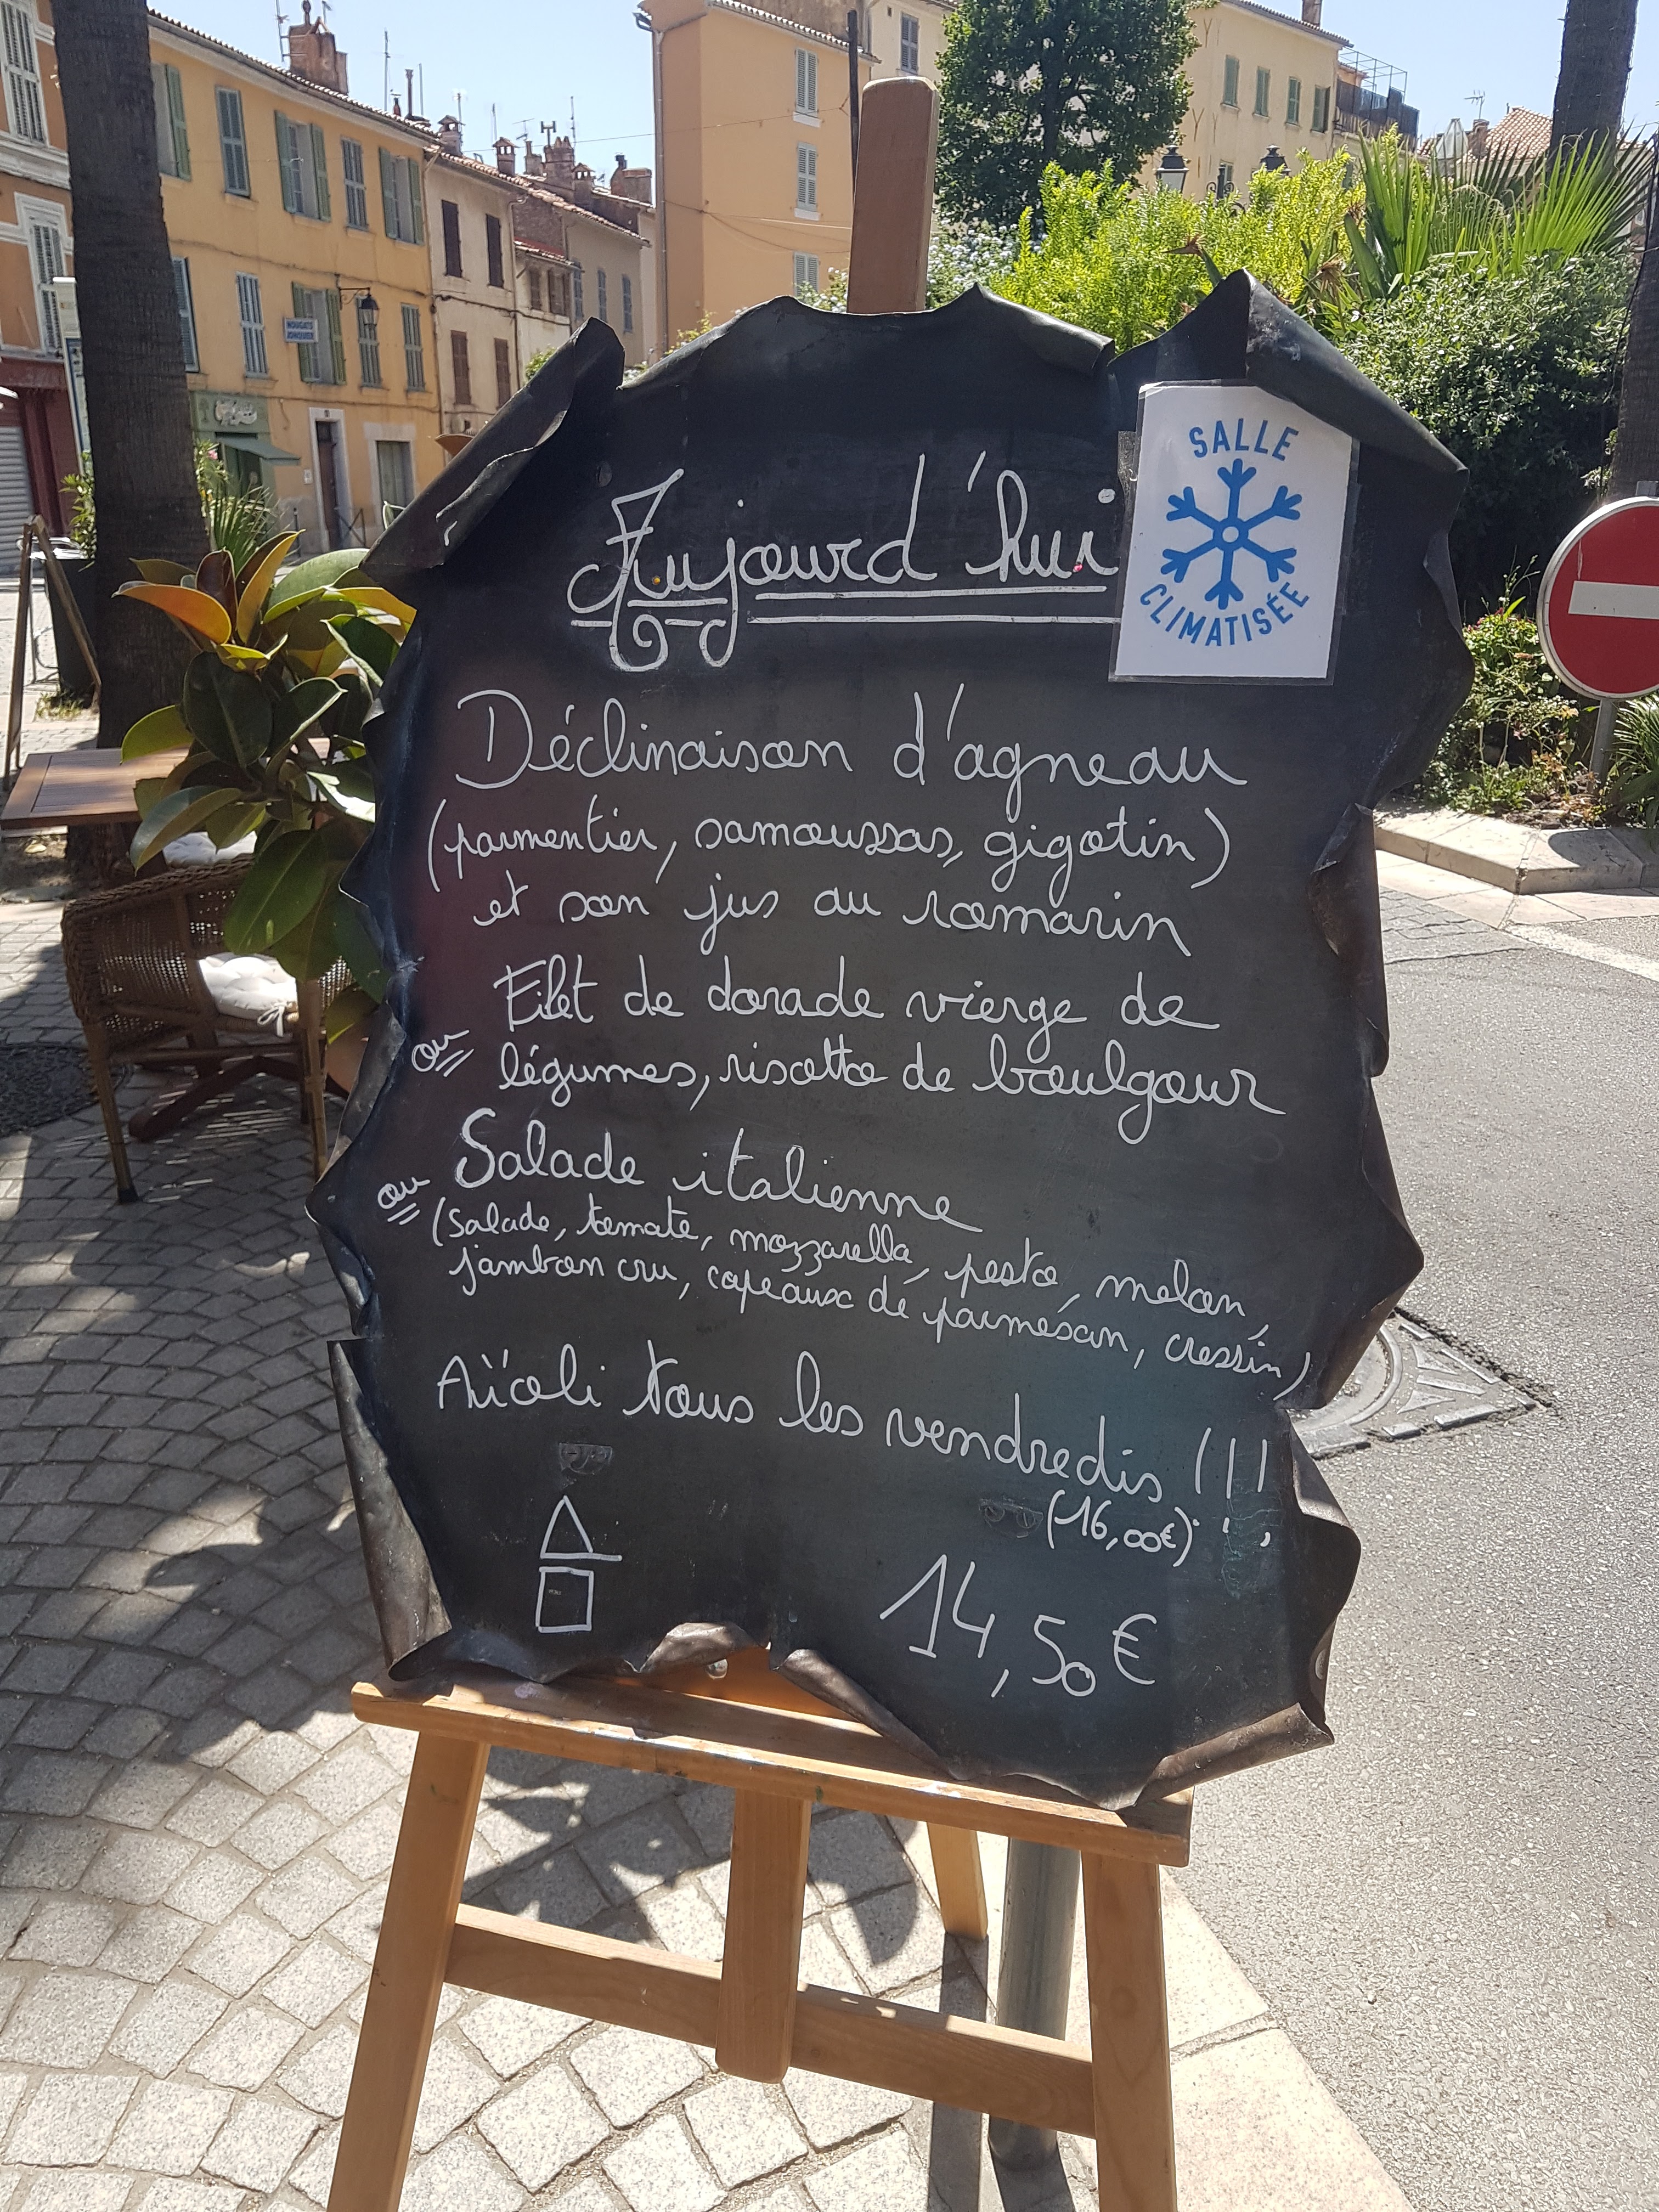 SALLE
CLIMATISÉE
Aujourd'hui
Déclinaison d'agneau
(parmentier, samoussas, gigotin)
et son jus au romarin
ou Filet de dorade vierge de
légumes, risotto de boulgour
ou Salade italienne
(Salade, tomate, mozzarella, pesto, melon,
jambon cru, copeaux de parmesan, cressin)
Aïoli tous les vendredis !!!
(16,00€)
14,50€
NOUGATS